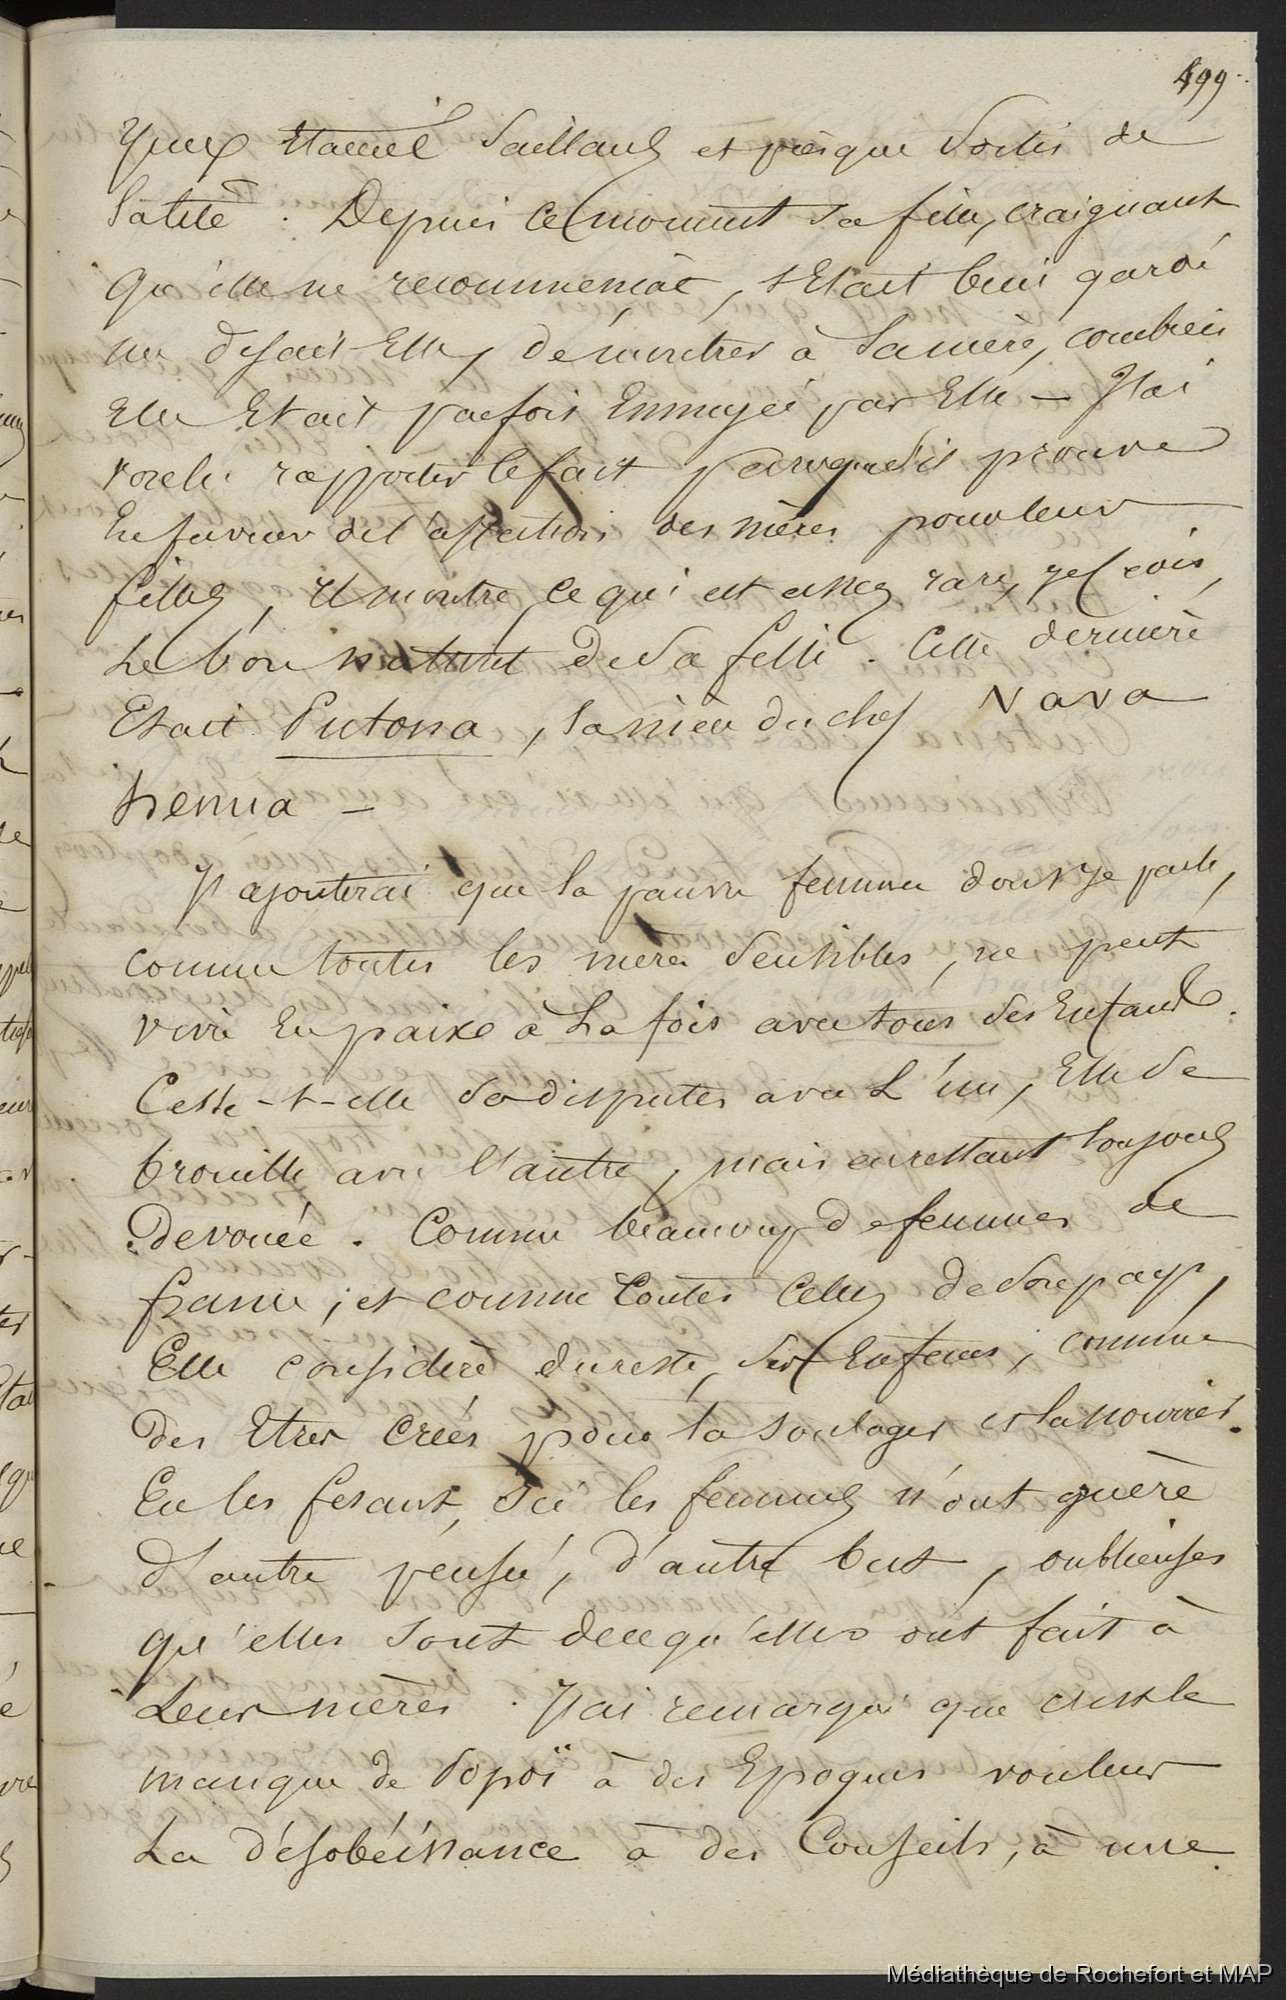 499
yeux étaient saillants et presque sortis de
sa tête. Depuis ce moment sa fille, craignant
qu'elle ne recommençât, s'était bien gardé
me disait-Elle, de montrer à sa mère, combien
Elle Etait parfois Ennuyée par Elle — J'ai
voulu rapporter le fait parce que s'il prouve
En faveur de l'affection des mères pour leurs
filles, il montre, ce qui est assez rare, je crois,
Le bon naturel de sa fille. Cette dernière
Etait Putona, la nièce du chef Nava
henua —
J'ajouterai que la pauvre femme dont je parle,
comme toutes les mères sensibles, ne peut
vivre En paix à La fois avec tous ses Enfants.
Cesse-t-elle de disputer avec L'un, Elle se
brouille avec l'autre, mais en restant toujours
dévouée. Comme beaucoup de femmes de
france, et comme toutes Celles de son pays,
Elle considère du reste, ses Enfants, comme
des Etres créés pour la soulager et la nourrir.
En les fesant, ici les femmes n'ont guère
d'autre pensée, d'autre but, oublieuses
qu'elles sont de ce qu'elles ont fait à
Leurs mères. J'ai remarqué que c'est le
manque de Popoï à des Epoques voulues
La désobéissance à des Conseils, à une
Médiathèque de Rochefort et MAP